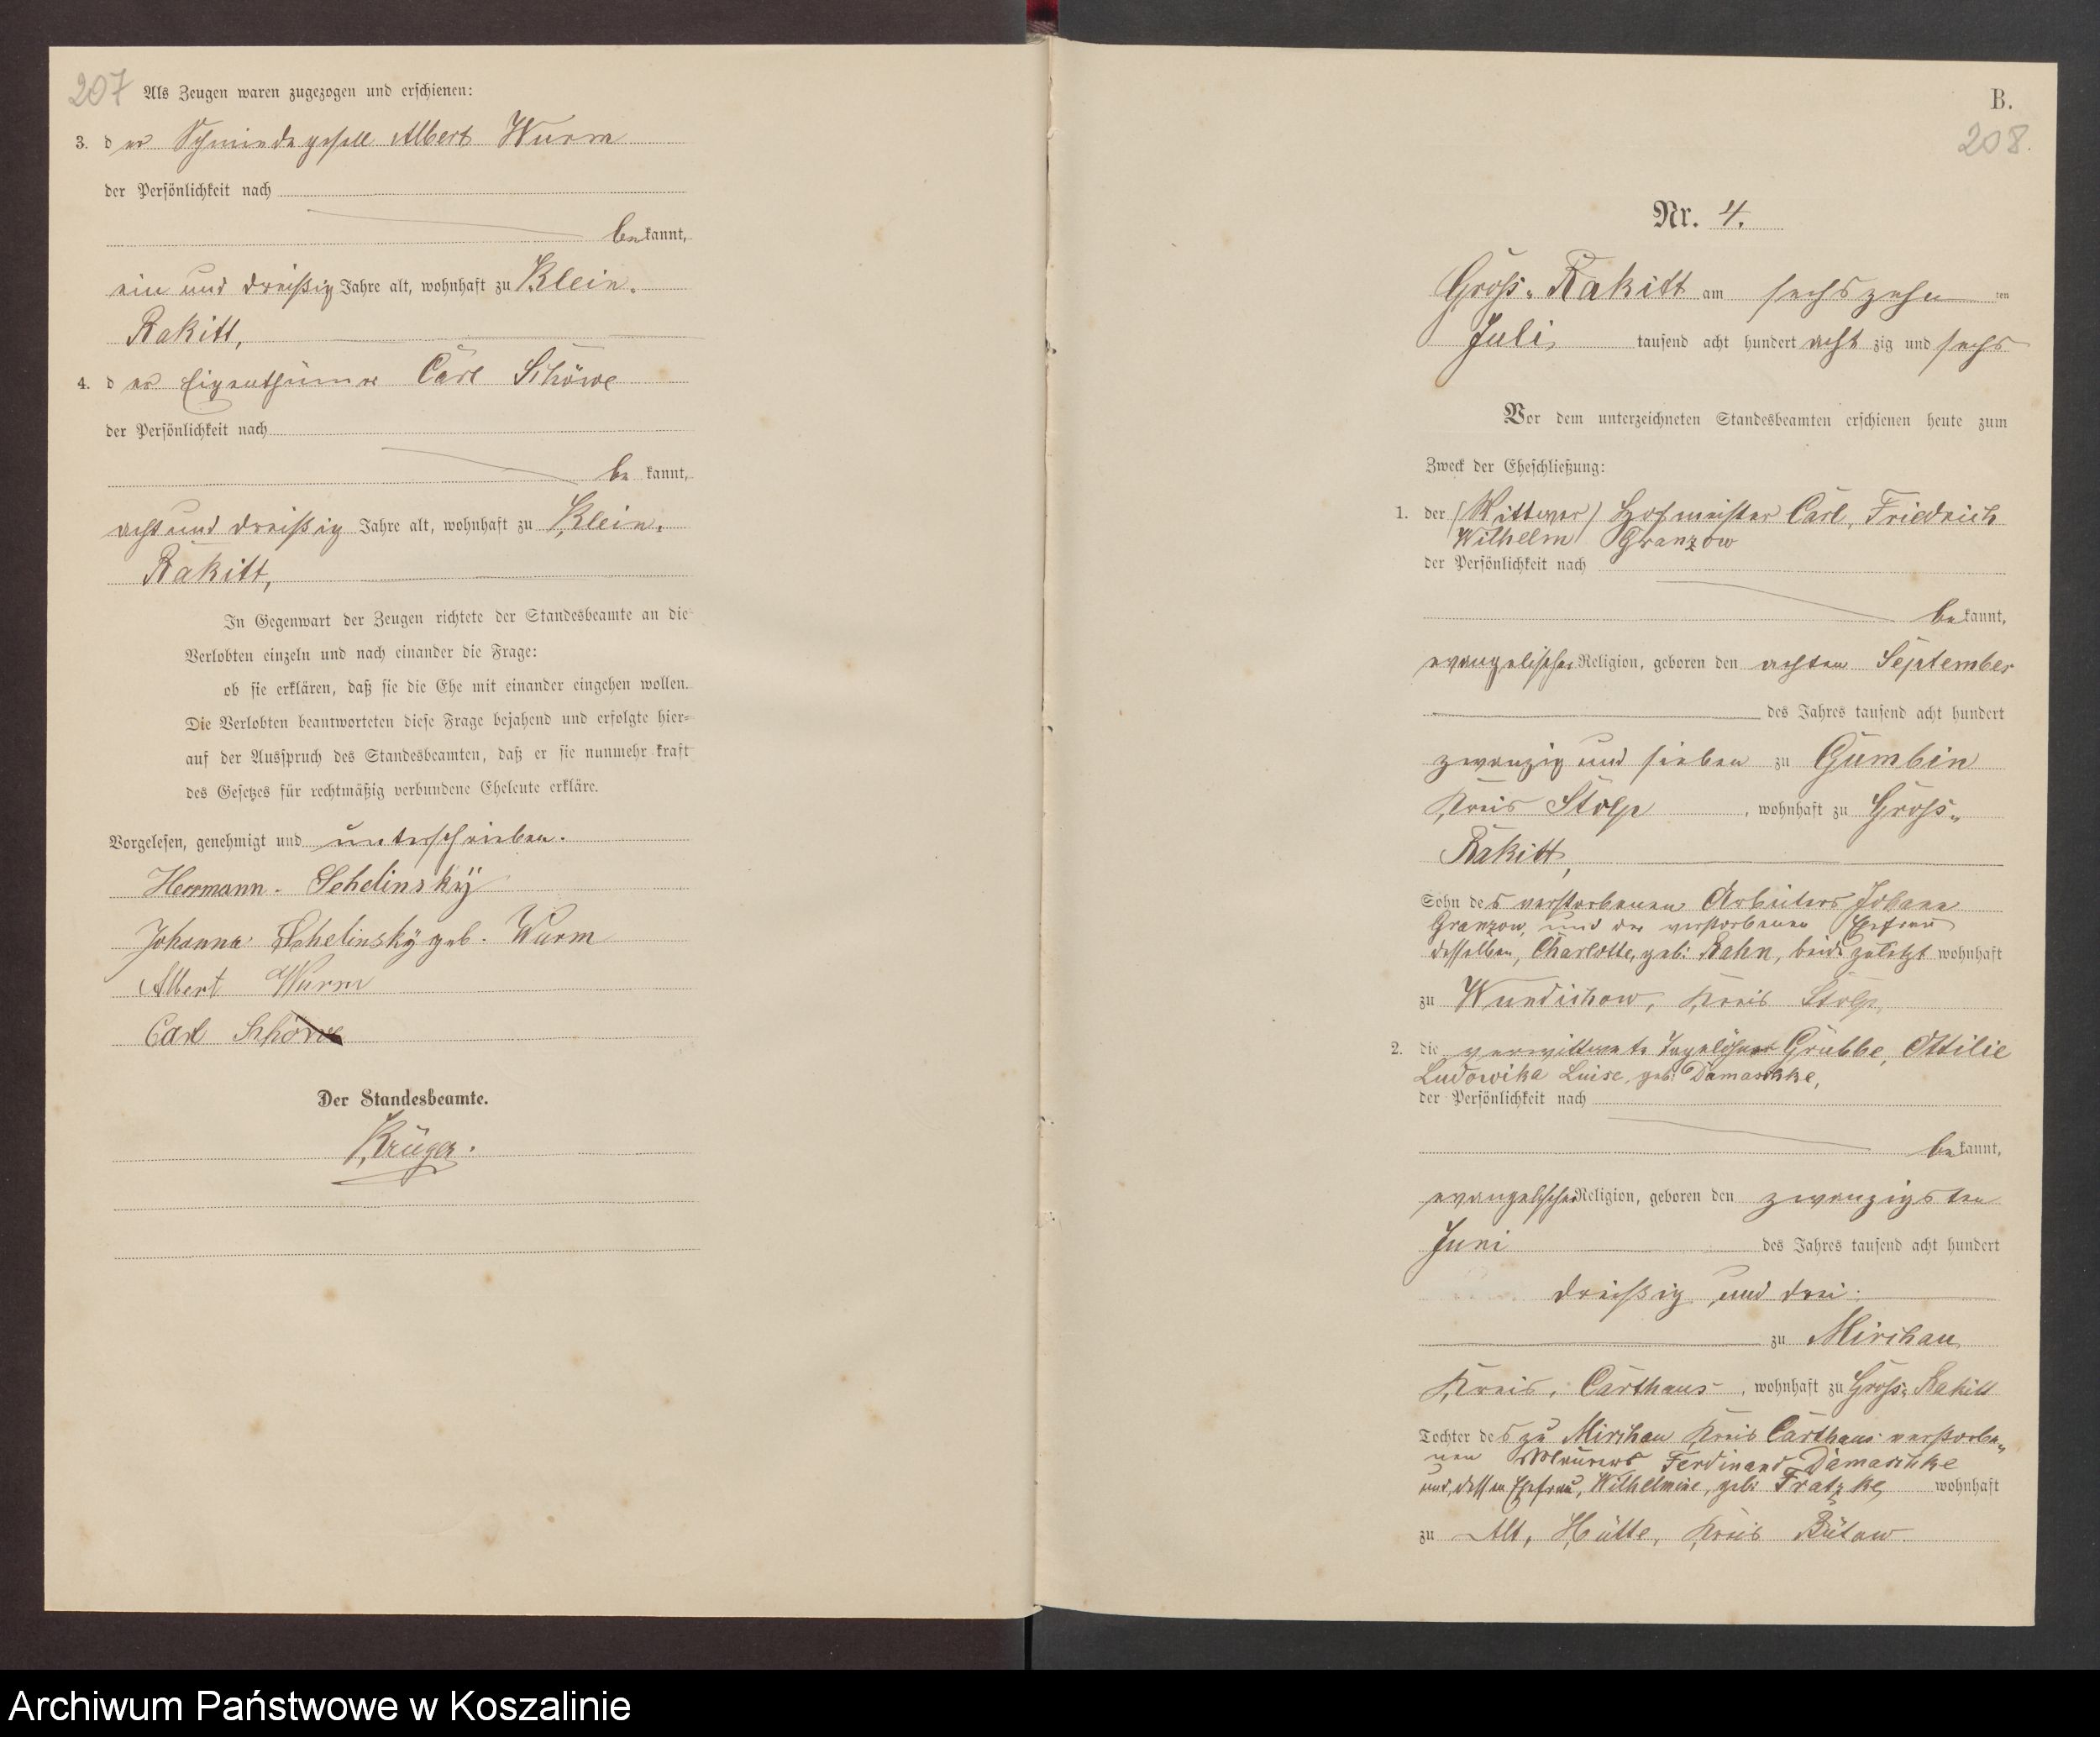 207
Als Zeugen waren zugezogen und erschienen:
3. der Schmiedegesell Albert Wurm
der Persönlichkeit nach
bekannt,
ein und dreißig Jahre alt, wohnhaft zu Klein-
Rakitt,
4. der Eigenthümer Carl Schöwe
der Persönlichkeit nach
bekannt,
acht und dreißig Jahre alt, wohnhaft zu Klein-
Rakitt,
In Gegenwart der Zeugen richtete der Standesbeamte an die
Verlobten einzeln und nach einander die Frage:
ob sie erklären, daß sie die Ehe mit einander eingehen wollen.
Die Verlobten beantworteten diese Frage bejahend und erfolgte hier-
auf der Ausspruch des Standesbeamten, daß er sie nunmehr kraft
des Gesetzes für rechtmäßig verbundene Eheleute erkläre.
Vorgelesen, genehmigt und unterschrieben.
Herrmann Schelinsky
Johanna Schelinsky geb. Wurm
Albert Wurm
Carl Schöwe
Der Standesbeamte.
Krüger.
B.
208.
Nr. 4.
Groß-Rakitt am sechszehn ten
Juli tausend acht hundert acht zig und sechs
Vor dem unterzeichneten Standesbeamten erschienen heute zum
Zweck der Eheschließung:
1. der (Wittwer) Hofmeister Carl, Friedrich
Wilhelm Granzow
der Persönlichkeit nach
bekannt,
evangelischer Religion, geboren den achten September
des Jahres tausend acht hundert
zwanzig und sieben zu Gumbin
Kreis Stolp, wohnhaft zu Groß-
Rakitt,
Sohn des verstorbenen Arbeiters Johann
Granzow, und der verstorbenen Ehefrau
desselben, Charlotte, geb. Rahn, beide zuletzt wohnhaft
zu Wundichow, Kreis Stolp,
2. die verwittwete Tagelöhner Grubbe, Ottilie
Ludowika Luise, geb. Damaschke,
der Persönlichkeit nach
bekannt,
evangelischer Religion, geboren den zwanzigsten
Juni des Jahres tausend acht hundert
dreißig und drei
zu Mirchau
Kreis, Carthaus, wohnhaft zu Groß-Rakitt
Tochter des zu Mirchau Kreis Carthaus verstorbe-
nen Maurers Ferdinand Damaschke
und dessen Ehefrau, Wilhelmine, geb. Fratzke, wohnhaft
zu Alt, Hütte, Kreis Bütow
Archiwum Państwowe w Koszalinie